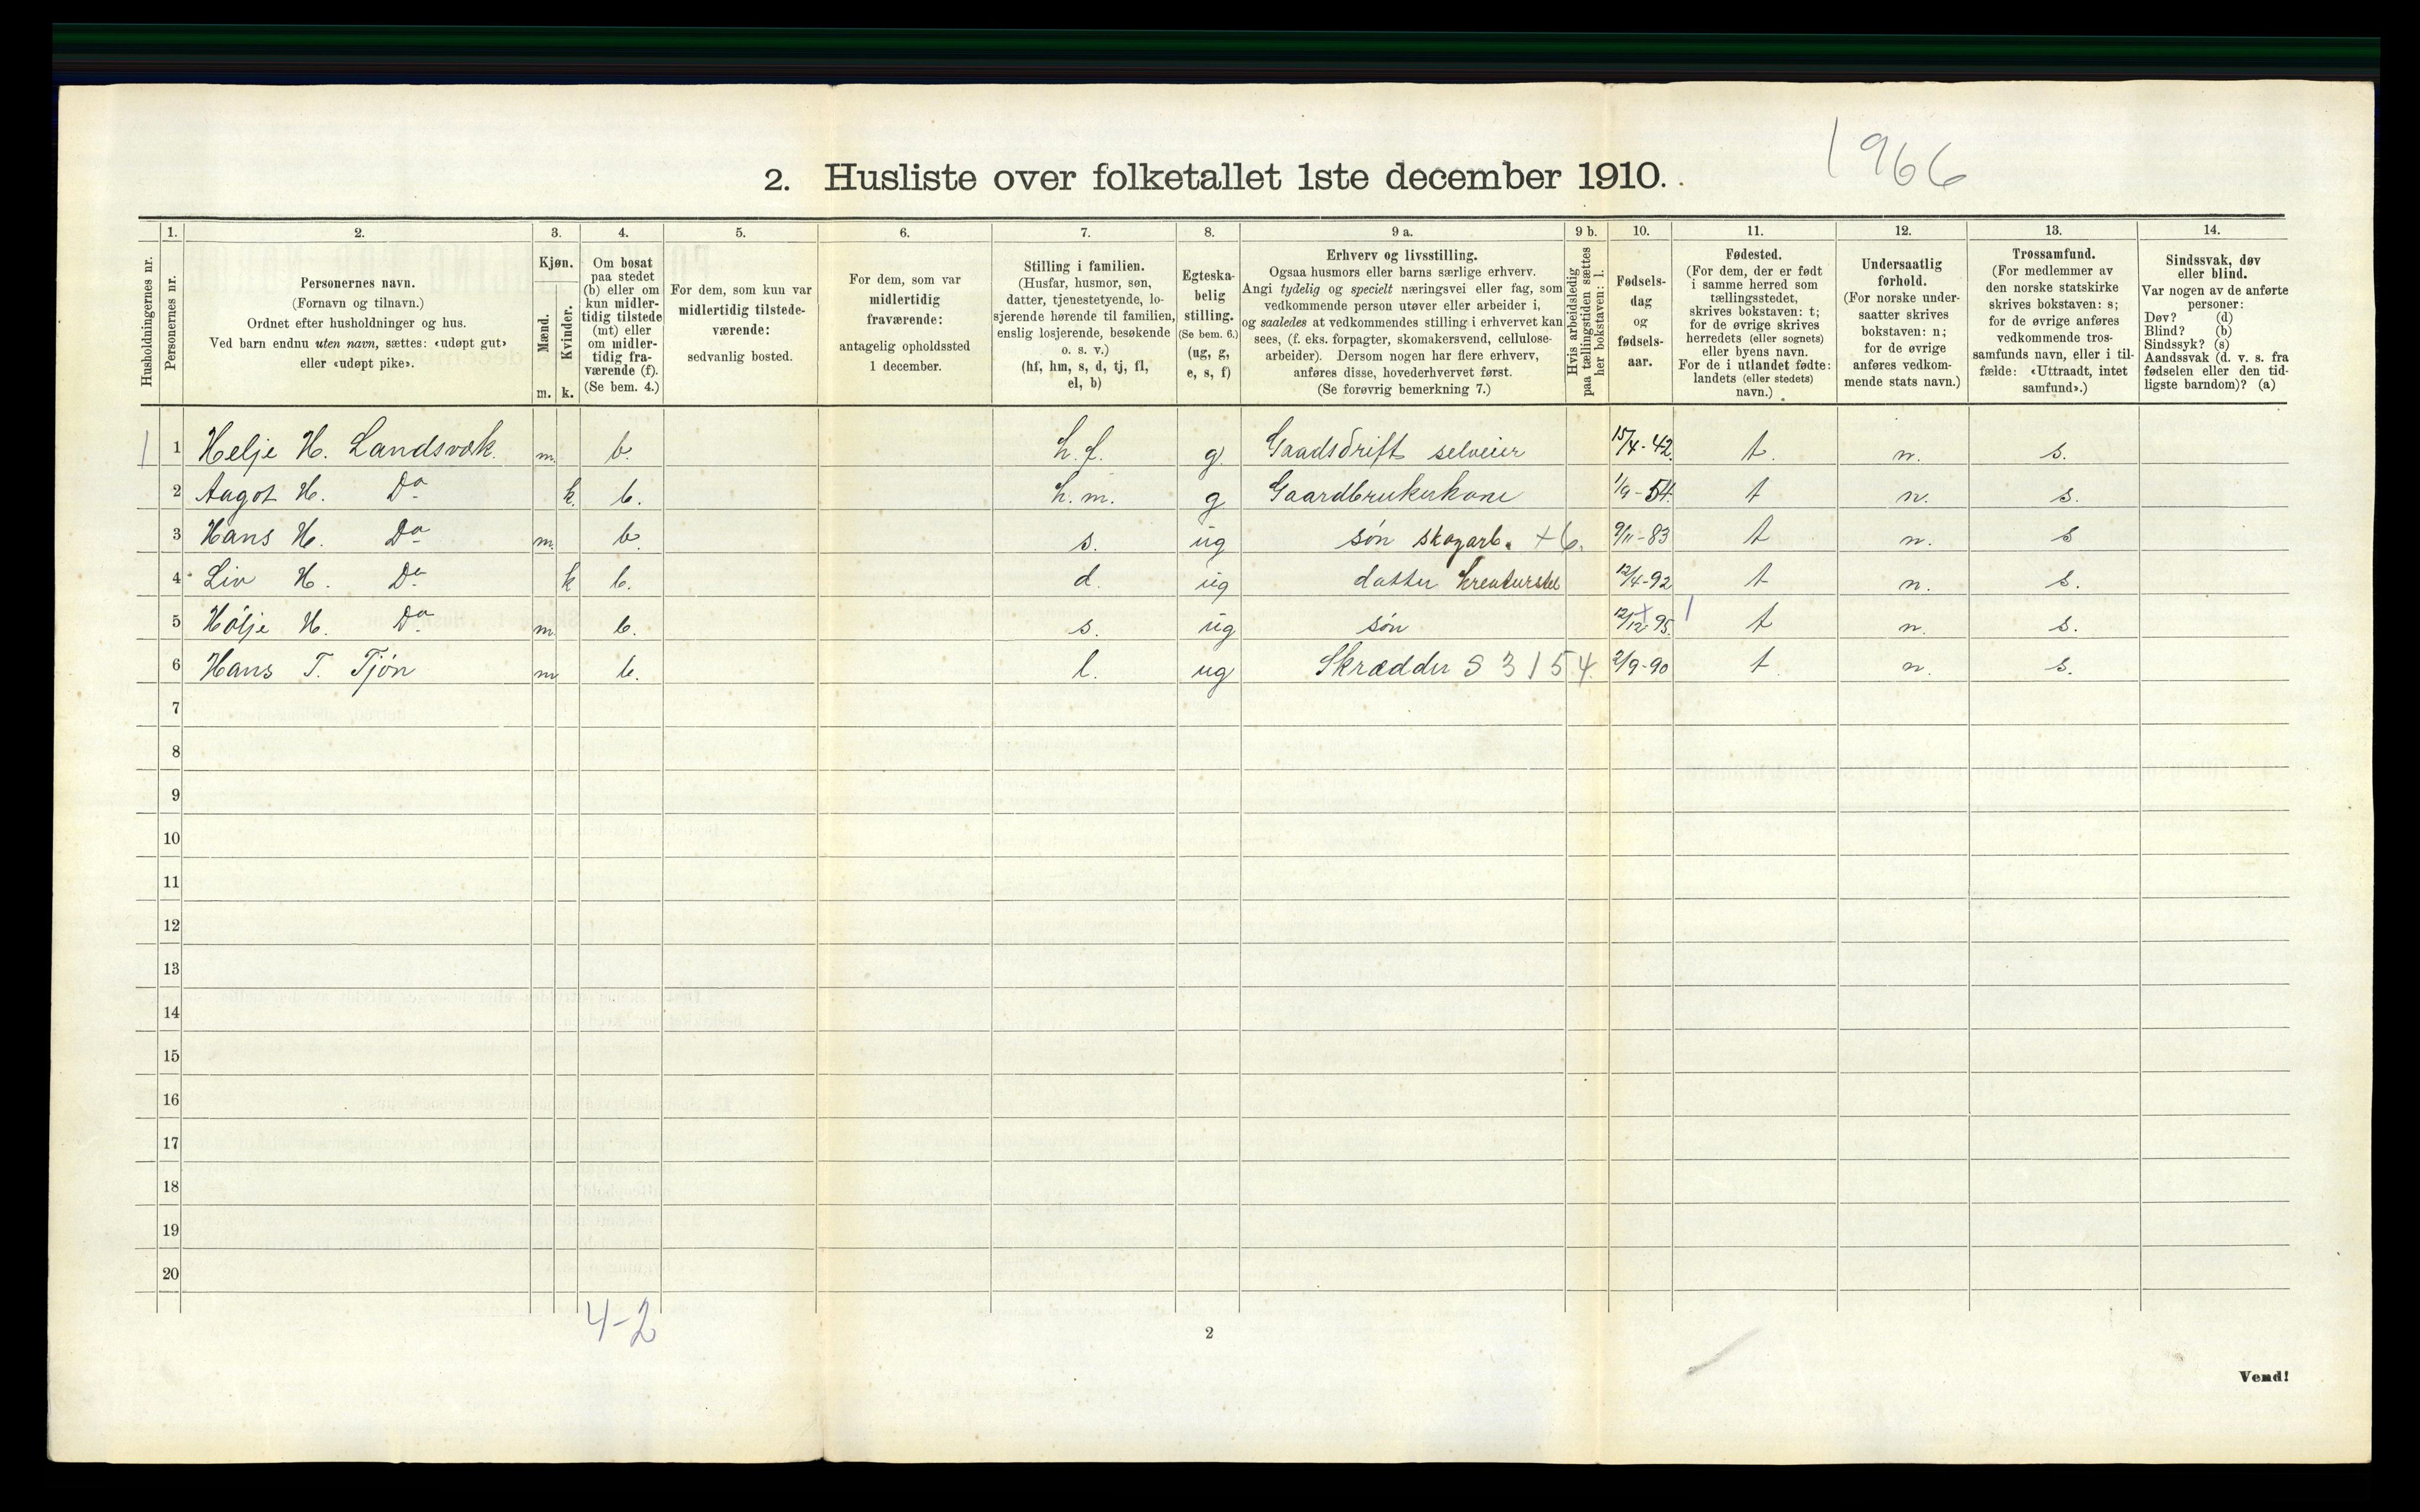 1966
2. Husliste over folketallet 1ste december 1910.
Husholdningernes nr.
1. Personernes nr.
2. Personernes navn. (Fornavn og tilnavn.) Ordnet efter husholdninger og hus. Ved barn endnu uten navn, sættes: «udøpt gut» eller «udøpt pike».
3. Kjøn. Mænd. m. Kvinder. k.
4. Om bosat paa stedet (b) eller om kun midlertidig tilstede (mt) eller om midlertidig fraværende (f). (Se bem. 4.)
5. For dem, som kun var midlertidig tilstedeværende: sedvanlig bosted.
6. For dem, som var midlertidig fraværende: antagelig opholdssted 1 december.
7. Stilling i familien. (Husfar, husmor, søn, datter, tjenestetyende, losjerende hørende til familien, enslig losjerende, besøkende o. s. v.) (hf, hm, s, d, tj, fl, el, b)
8. Egteskabelig stilling. (Se bem. 6.) (ug, g, e, s, f)
9 a. Erhverv og livsstilling. Ogsaa husmors eller barns særlige erhverv. Angi tydelig og specielt næringsvei eller fag, som vedkommende person utøver eller arbeider i, og saaledes at vedkommendes stilling i erhvervet kan sees, (f. eks. forpagter, skomakersvend, cellulosearbeider). Dersom nogen har flere erhverv, anføres disse, hovederhvervet først. (Se forøvrig bemerkning 7.)
9 b. Hvis arbeidsledig paa tællingstiden sættes her bokstaven: l.
10. Fødselsdag og fødselsaar.
11. Fødested. (For dem, der er født i samme herred som tællingsstedet, skrives bokstaven: t; for de øvrige skrives herredets (eller sognets) eller byens navn. For de i utlandet fødte: landets (eller stedets) navn.)
12. Undersaatlig forhold. (For norske undersaatter skrives bokstaven: n; for de øvrige anføres vedkommende stats navn.)
13. Trossamfund. (For medlemmer av den norske statskirke skrives bokstaven: s; for de øvrige anføres vedkommende trossamfunds navn, eller i tilfælde: «Uttraadt, intet samfund».)
14. Sindssvak, døv eller blind. Var nogen av de anførte personer: Døv? (d) Blind? (b) Sindssyk? (s) Aandssvak (d. v. s. fra fødselen eller den tidligste barndom)? (a)
1 1 Helje H. Landsvok. m. b. h.f. g. Gaadsdrift selveier 15/4-42. t. n. s.
2 Aagot H. Do k. b. h.m. g Gaardbrukerkone 1/9-54. t n. s.
3 Hans H. Do m. b. s. ug søn skogarb. +6. 9/11-83 t n. s
4 Liv H. Do k b. d. ug datter kreaturstel 12/4-92 t n. s.
5 Hölje H. Do m. b. s. ug søn 12/12-95. 1 t n. s.
6 Hans T. Tjön m b. l. ug Skrædder S 3154 2/9-90 t. n. s.
7
8
9
10
11
12
13
14
15
16
17
18
19
20
4-2
2
Vend!